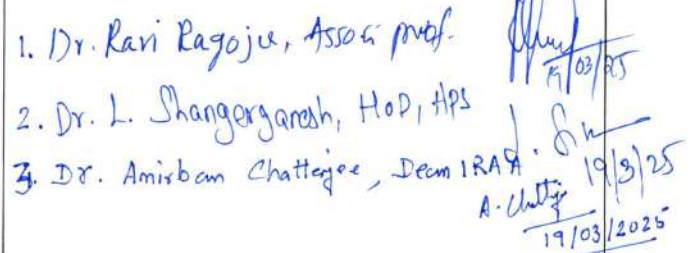 1. Dr. Ravi Ragoju, Assoc. prof.
19/03/25
2. Dr. L. Shangerganesh, HoD, HPS
19/3/25
3. Dr. Anirban Chatterjee, Dean IRAA
A. Chatterjee
19/03/2025